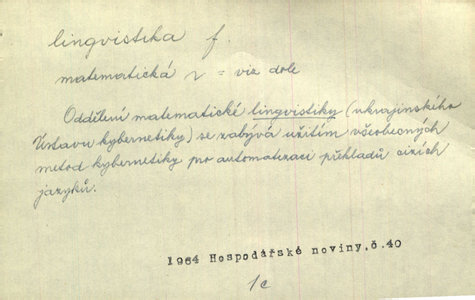 lingvistika f.
matematická ~ = viz dole
Oddělení matematické lingvistiky (ukrajinského
Ústavu kybernetiky) se zabývá užitím všeobecných
metod kybernetiky pro automatizaci překladů cizích
jazyků.
1964 Hospodářské noviny,č.40
1c